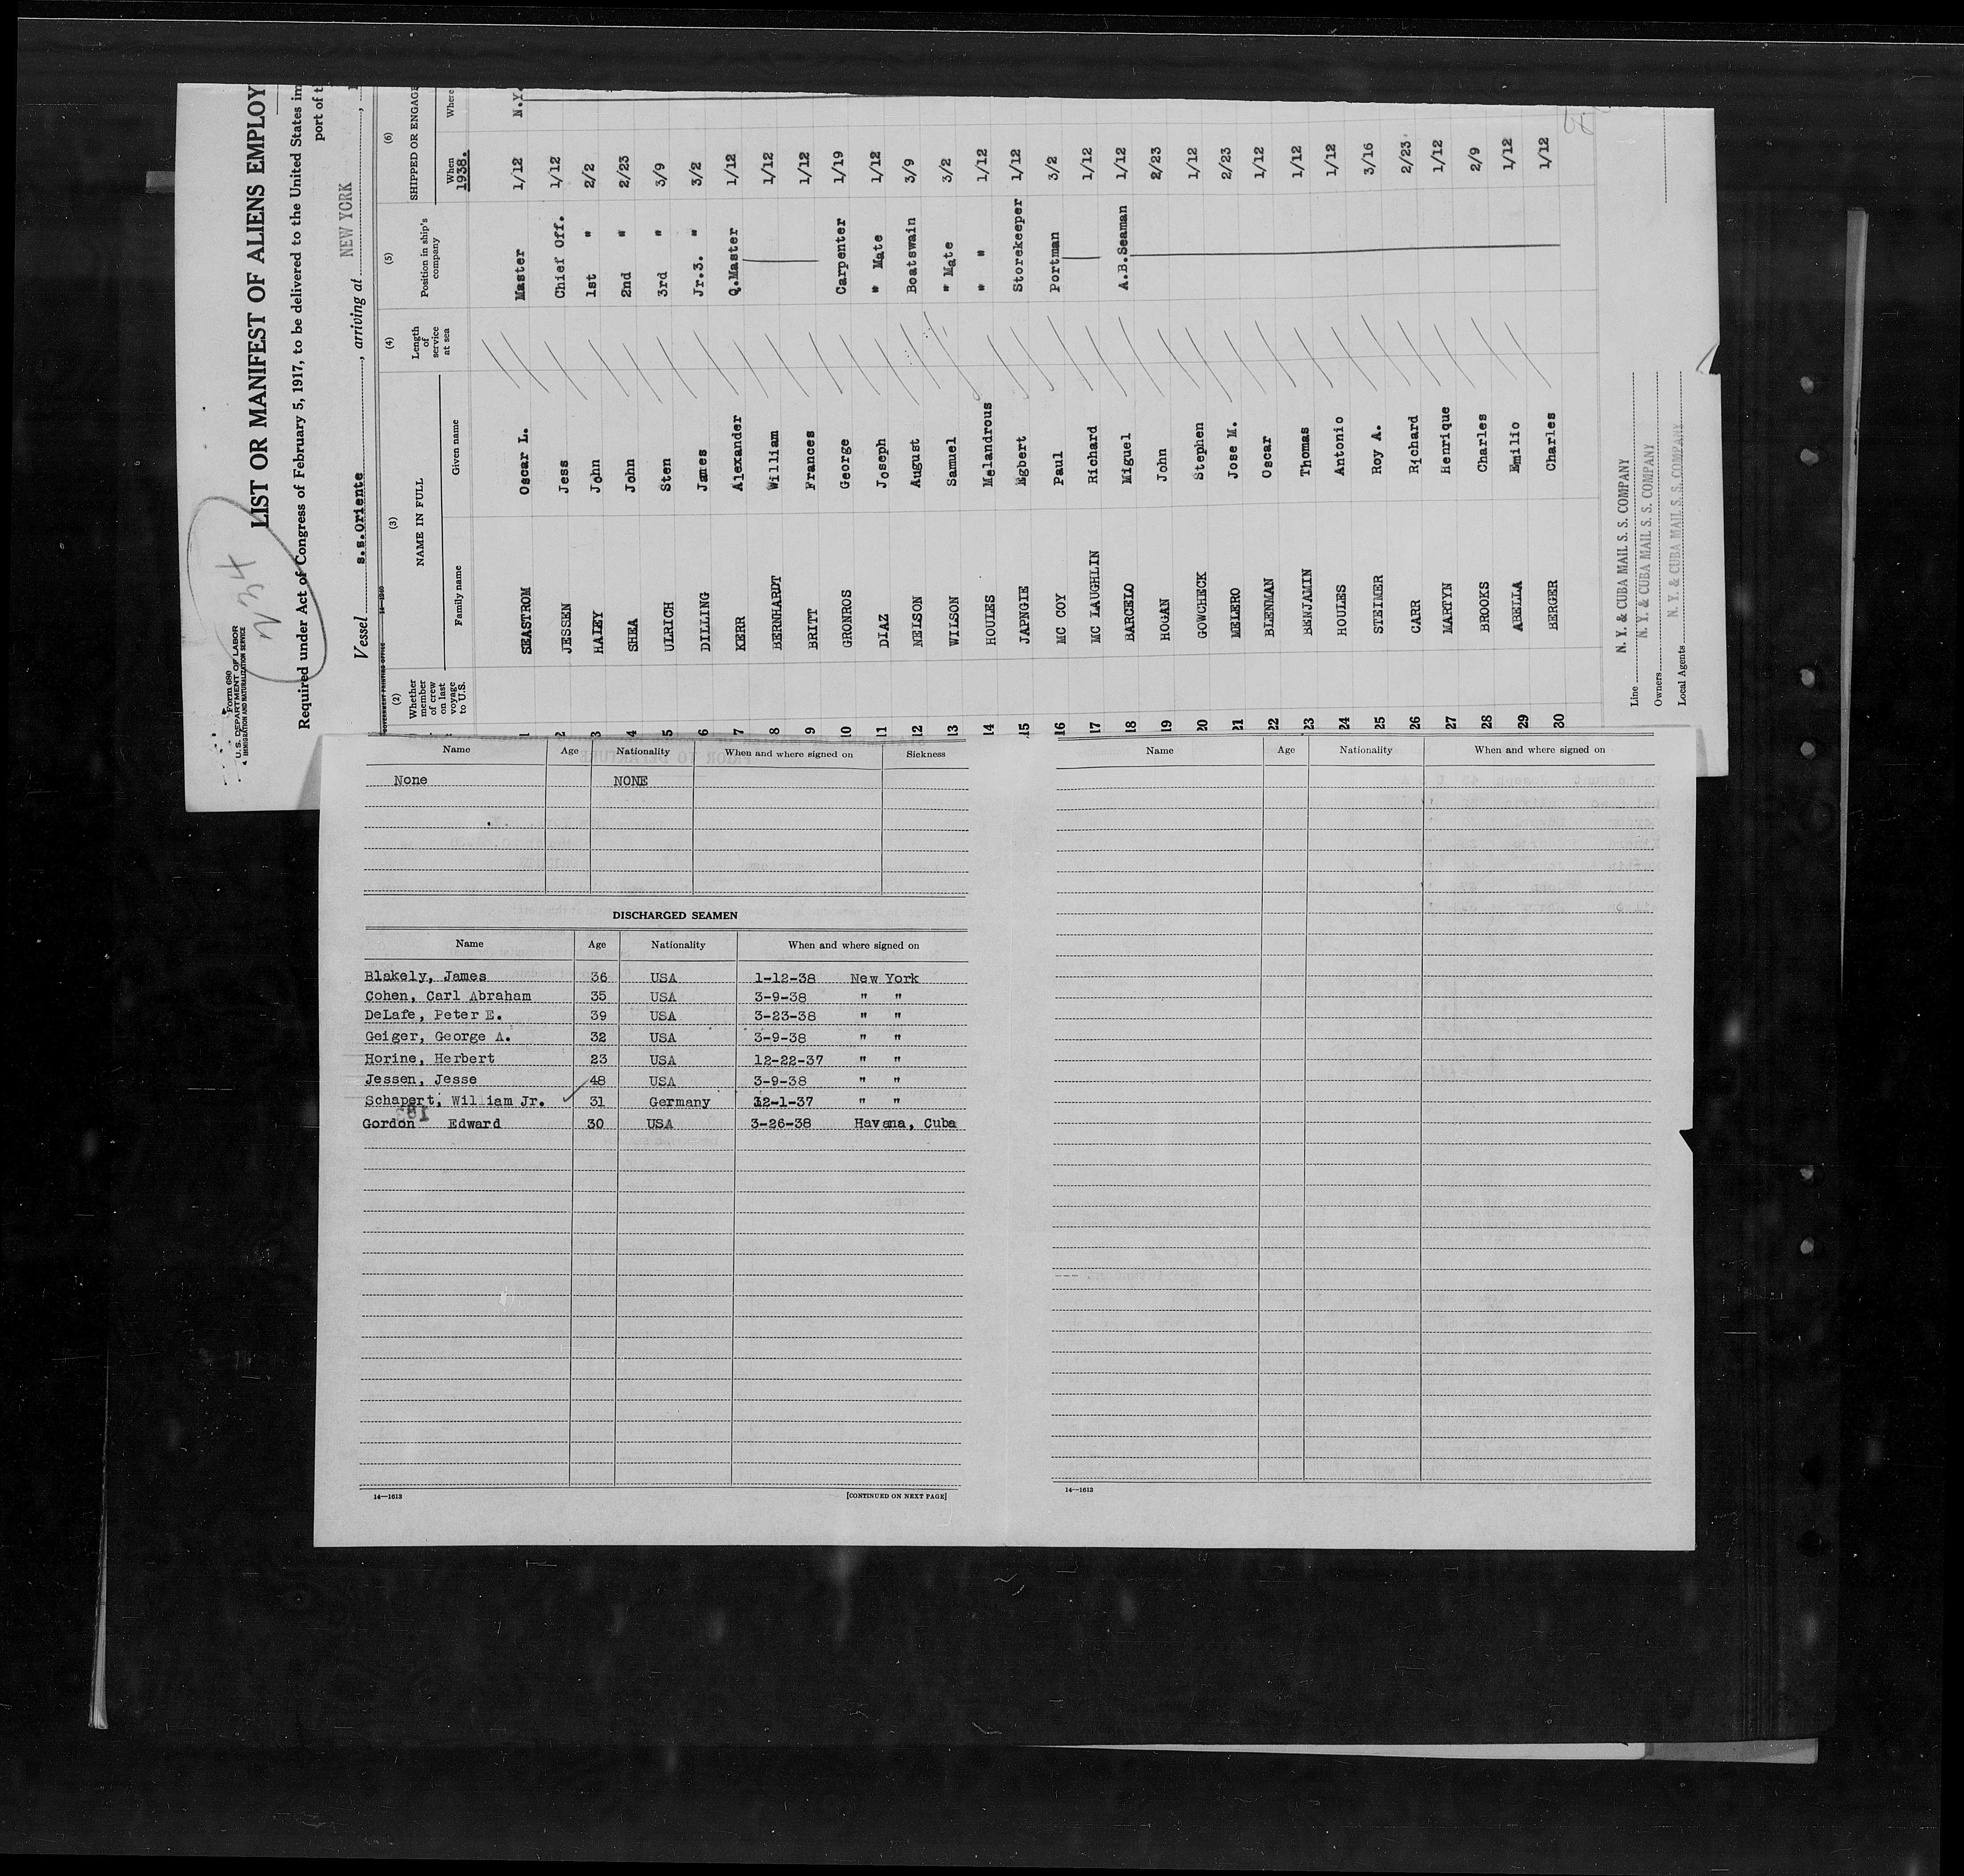 234
Form 680
U. S. DEPARTMENT OF LABOR
IMMIGRATION AND NATURALIZATION SERVICE
LIST OR MANIFEST OF ALIENS EMPLOY
Required under Act of Congress of February 5, 1917, to be delivered to the United States im
port of t
Vessel s.s.Oriente, arriving at NEW YORK,
GOVERNMENT PRINTING OFFICE
(2) (3) (4) (5) (6)
Whether member of crew on last voyage to U.S. NAME IN FULL Length of service at sea Position in ship's company SHIPPED OR ENGAGE
Family name Given name When Where
1938.
1 SEASTROM Oscar L. Master 1/12 N.Y.
2 JESSEN Jess Chief Off. 1/12
3 HALEY John 1st " 2/2
4 SHEA John 2nd " 2/23
5 ULRICH Sten 3rd " 3/9
6 DILLING James Jr.3. " 3/2
7 KERR Alexander Q.Master 1/12
8 BERNHARDT William 1/12
9 BRITT Frances 1/12
10 GRONROS George Carpenter 1/19
11 DIAZ Joseph " Mate 1/12
12 NELSON August Boatswain 3/9
13 WILSON Samuel " Mate 3/2
14 HOULES Melandrous " " 1/12
15 JAPNGIE Egbert Storekeeper 1/12
16 MC COY Paul Portman 3/2
17 MC LAUGHLIN Richard 1/12
18 BARCELO Miguel A.B.Seaman 1/12
19 HOGAN John 2/23
20 GOWCHECK Stephen 1/12
21 MELERO Jose M. 2/23
22 BLENMAN Oscar 1/12
23 BENJAMIN Thomas 1/12
24 HOULES Antonio 1/12
25 STEIMER Roy A. 3/16
26 CARR Richard 2/23
27 MARTYN Henrique 1/12
28 BROOKS Charles 2/9
29 ABELLA Emilio 1/12
30 BERGER Charles 1/12
Line N. Y. & CUBA MAIL S. S. COMPANY
Owners N. Y. & CUBA MAIL S. S. COMPANY
Local Agents N. Y. & CUBA MAIL S. S. COMPANY
Name Age Nationality When and where signed on Sickness
None NONE
DISCHARGED SEAMEN
Name Age Nationality When and where signed on
Blakely, James 36 USA 1-12-38 New York
Cohen, Carl Abraham 35 USA 3-9-38 " "
DeLafe, Peter E. 39 USA 3-23-38 " "
Geiger, George A. 32 USA 3-9-38 " "
Horine, Herbert 23 USA 12-22-37 " "
Jessen, Jesse 48 USA 3-9-38 " "
Schapert, William Jr. 31 Germany 12-1-37 " "
Gordon Edward 30 USA 3-26-38 Havana, Cuba
14—1613 [CONTINUED ON NEXT PAGE]
Name Age Nationality When and where signed on
14—1613